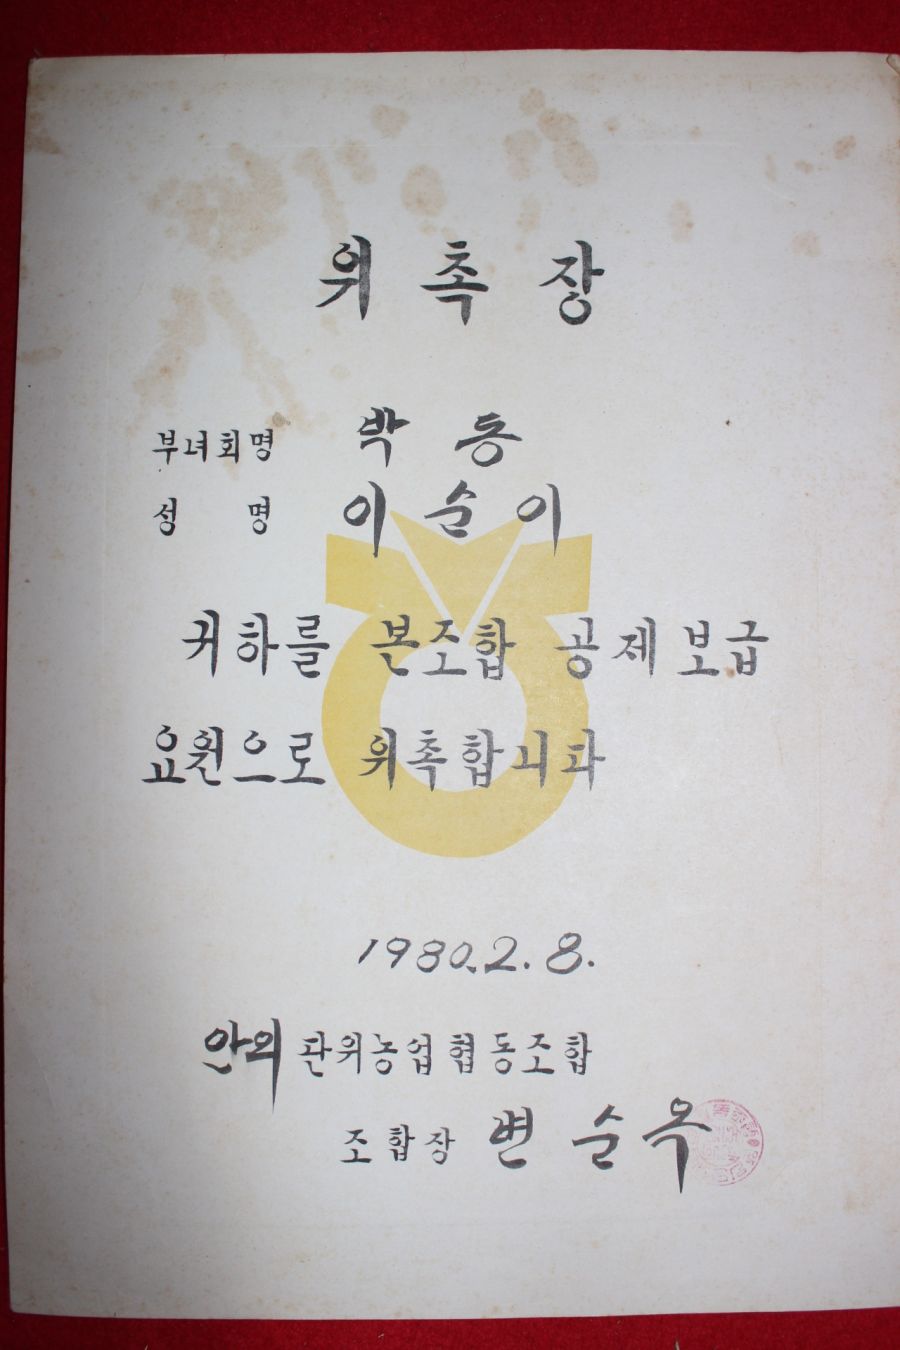 위촉장
부녀회명 박동
성 명 이순이
귀하를 본조합 공제보급
요원으로 위촉합니다
1980.2.8.
안의 단위농업협동조합
조합장 변순옥